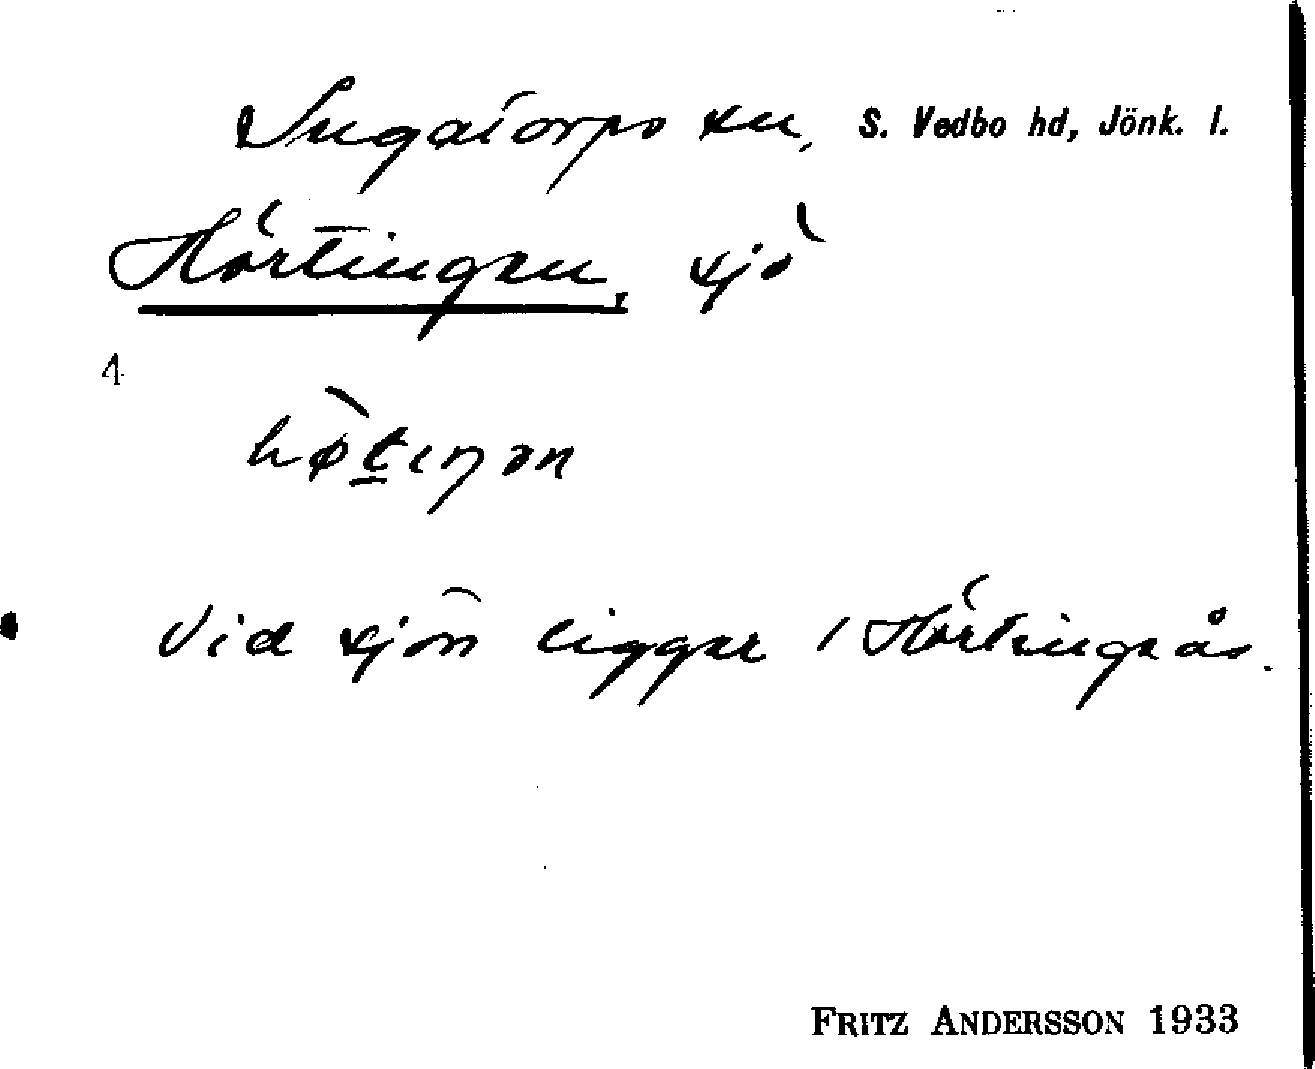 Ingatorps sn, S. Vedbo hd, Jönk. l.
Hörtingen, sjö
4
hø̀tıŋən
Vid sjön ligger / Hörtingsås.
FRITZ ANDERSSON 1933